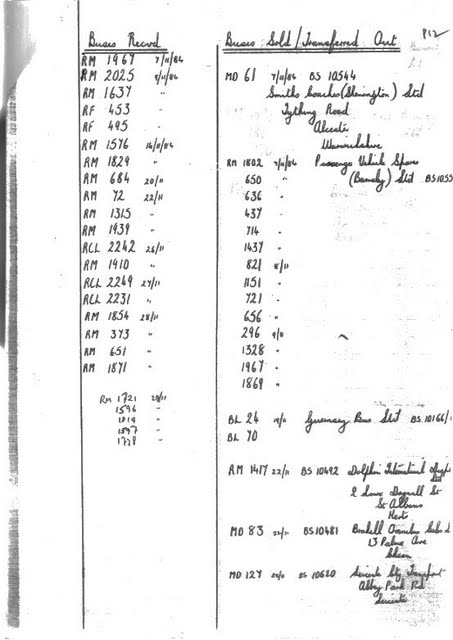 P12
Buses Recvd
RM 1967 7/11/86
RM 2025 9/11/86
RM 1637 "
RF 453 "
RF 495 "
RM 1576 14/11/86
RM 1829 "
RM 684 20/11
RM 72 22/11
RM 1315 "
RM 1939 "
RCL 2242 25/11
RM 1910 "
RCL 2249 27/11
RCL 2231 "
RM 1854 28/11
RM 373 "
RM 651 "
RM 1871 "
RM 1721 28/11
1596 "
1819 "
1597 "
1728 "
Buses Sold/Transferred Out
MD 61 7/11/86 BS 10544
Smiths Coaches (Shenington) Ltd
Tything Road
Alcester
Warwickshire
RM 1802 7/11/86 Passenger Vehicle Spares
650 " (Barnsley) Ltd BS 1055
636 "
437 "
714 "
1437 "
821 8/11
1151 "
721 "
656 "
296 9/11
1328 "
1967 "
1869 "
BL 24 19/11 Guernsey Bus Ltd BS 10166/
BL 70
RM 1417 22/11 BS 10492 Dolphin International
Ltd
2 Lower Dagnall St
St Albans
Herts
MD 83 22/11 BS 10481 Omnibus
13 Palmer Ave
MD 127 BS 10620 Leicester City Transport
Abbey Park Rd
Leicester